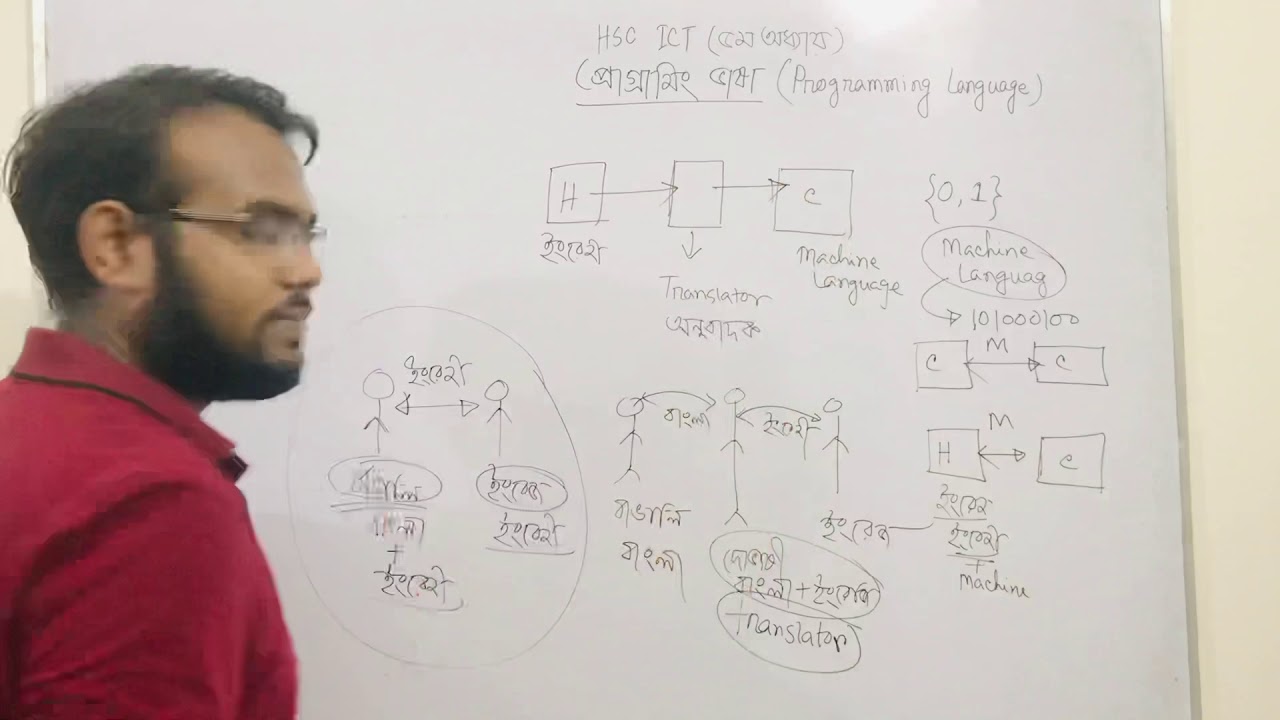 HSC ICT (৫ম অধ্যায়)
প্রোগ্রামিং ভাষা (Programming Language)
H
C
{0, 1}
ইংরেজী
Machine
Language
Machine
Languag
Translator
অনুবাদক
101000100
C
M
C
ইংরেজী
বাংলা
ইংরেজী
H
M
C
বাঙালি
বাংলা
+
ইংরেজী
ইংরেজ
ইংরেজী
বাঙালি
বাংলা
দোভাষী
বাংলা + ইংরেজি
Translator
ইংরেজ
ইংরেজ
ইংরেজী
+
Machine